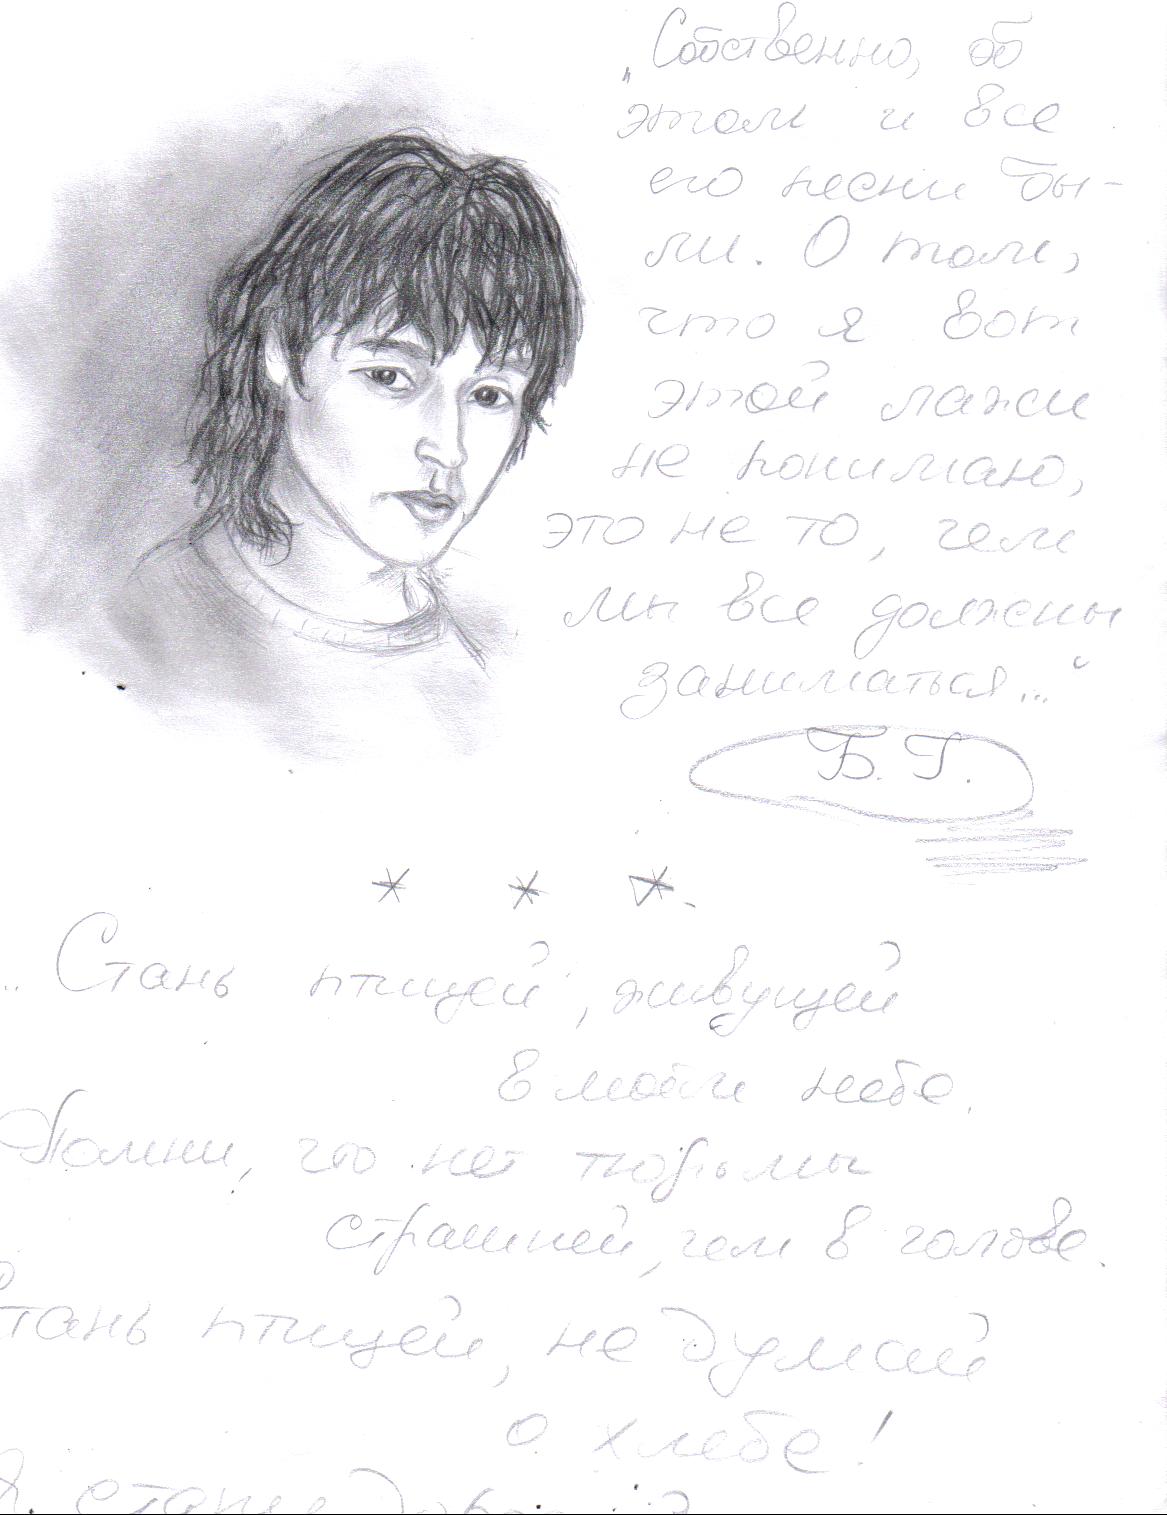 „Собственно, об
этом и все
его песни бы-
ли. О том,
что я вот
этой лажи
не понимаю,
это не то, чем
мы все должны
заниматься..."
Б.Г.
* * *
„Стань птицей, живущей
в моём небе.
Помни, что нет тюрьмы
страшней, чем в голове.
Стань птицей, не думай
о хлебе!
Я стану